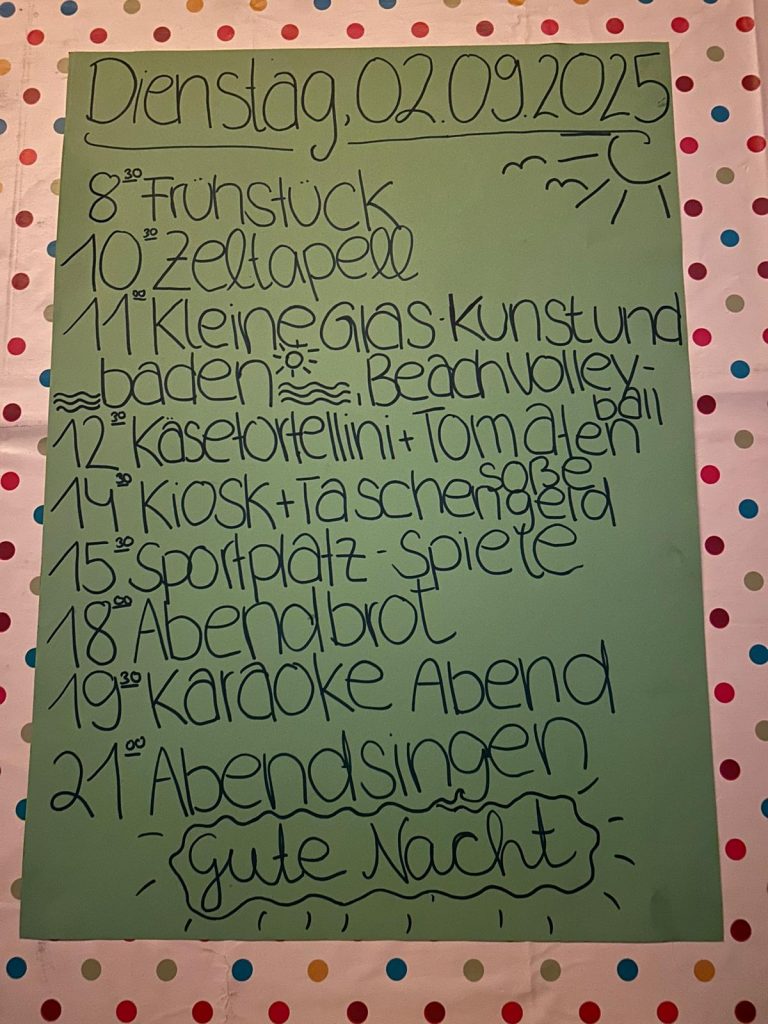 Dienstag, 02.09.2025
8³⁰ Frühstück
10³⁰ Zeltapell
11⁰⁰ Kleine Glas-Kunst und
baden, Beachvolley-
ball
12³⁰ Käsetortellini + Tomaten
soße
14³⁰ Kiosk + Taschengeld
15³⁰ Sportplatz-Spiele
18⁰⁰ Abendbrot
19³⁰ Karaoke Abend
21⁰⁰ Abendsingen
Gute Nacht